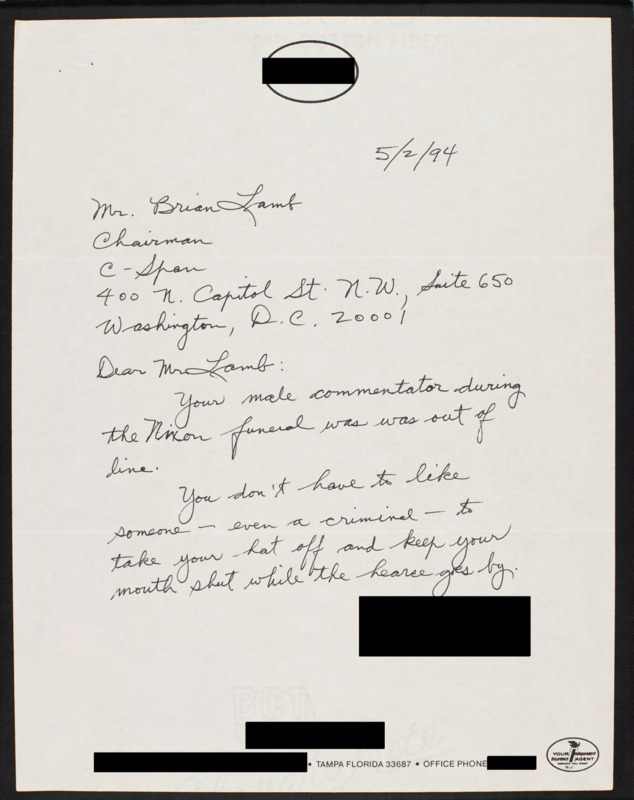 5/2/94
Mr. Brian Lamb
Chairman
C-Span
400 N. Capitol St. N.W., Suite 650
Washington, D.C. 20001
Dear Mr. Lamb:
Your male commentator during
the Nixon funeral was was out of
line.
You don't have to like
someone – even a criminal – to
take your hat off and keep your
mouth shut while the hearse goes by.
• TAMPA FLORIDA 33687 • OFFICE PHONE
YOUR Independent
Insurance AGENT